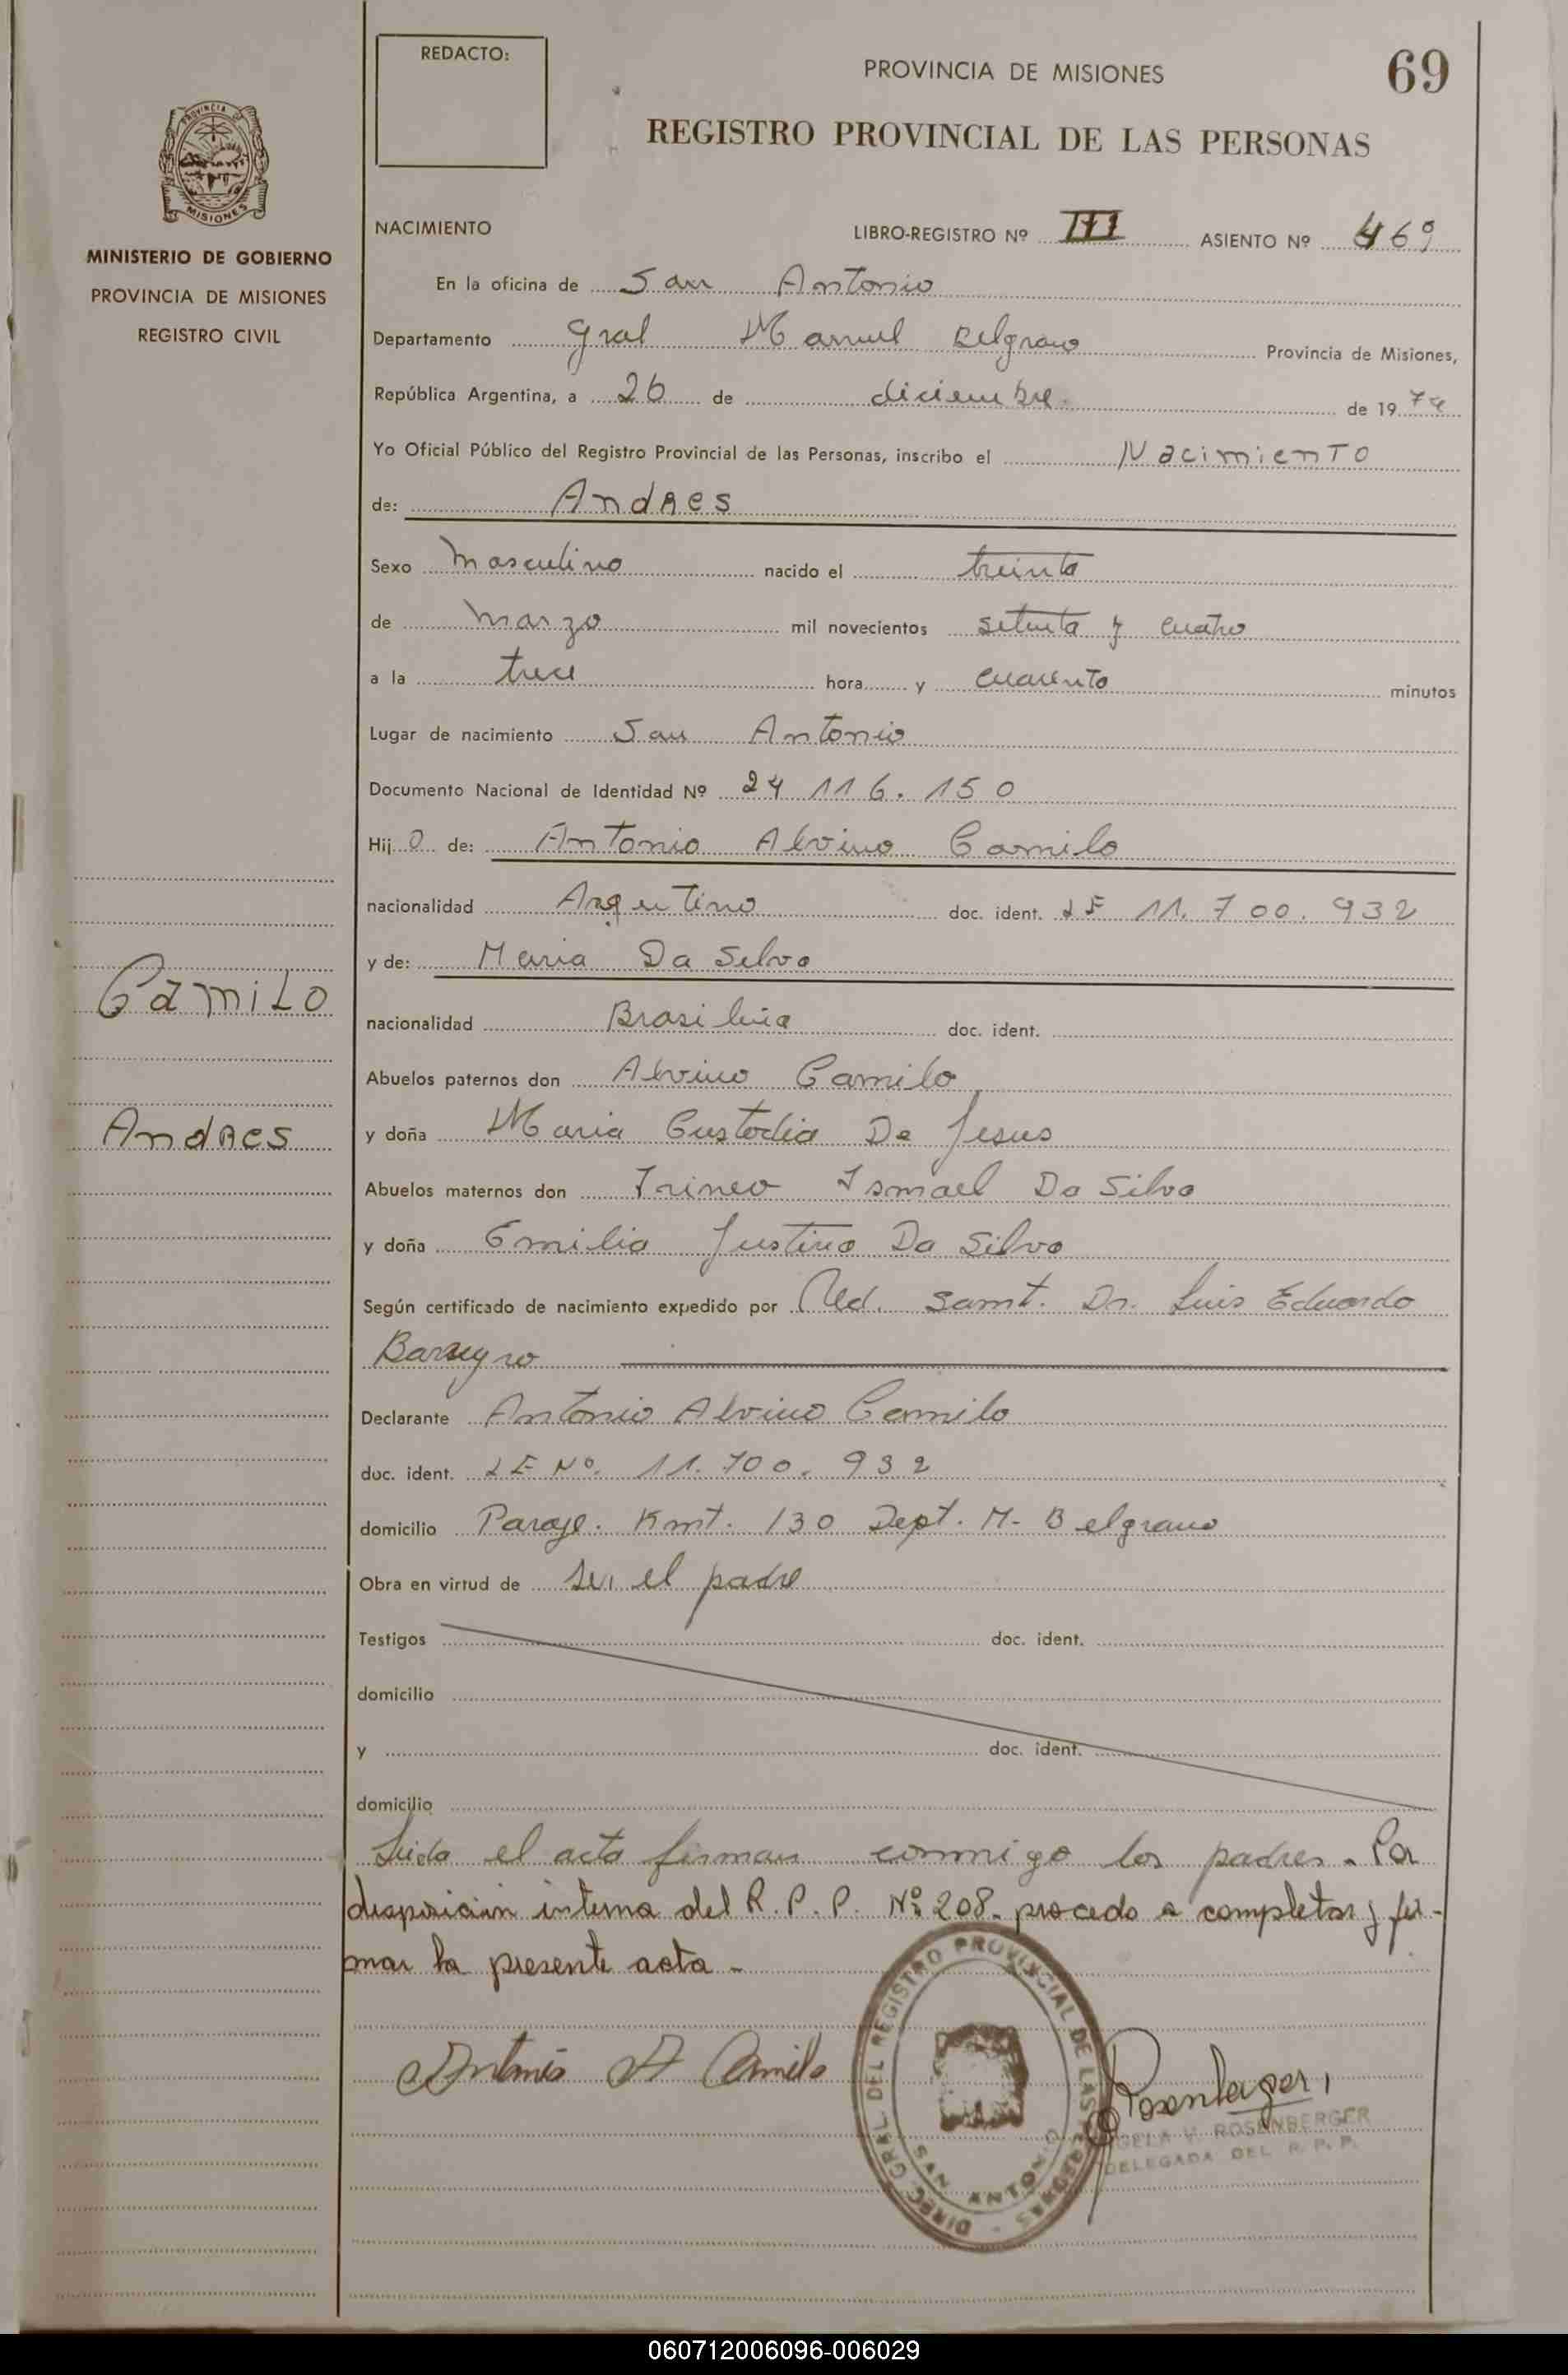 REDACTO:
PROVINCIA DE MISIONES
69
REGISTRO PROVINCIAL DE LAS PERSONAS
PROVINCIA
MISIONES
MINISTERIO DE GOBIERNO
PROVINCIA DE MISIONES
REGISTRO CIVIL
NACIMIENTO
LIBRO-REGISTRO Nº III ASIENTO Nº 469
En la oficina de San Antonio
Departamento Gral Manuel Belgrano Provincia de Misiones,
República Argentina, a 26 de diciembre. de 1974
Yo Oficial Público del Registro Provincial de las Personas, inscribo el Nacimiento
de: Andres
Sexo Masculino nacido el treinta
de Marzo mil novecientos setenta y cuatro
a la trece hora y cuarenta minutos
Lugar de nacimiento San Antonio
Documento Nacional de Identidad Nº 24 116.150
Hijo de: Antonio Alvino Camilo
nacionalidad Argentino doc. ident. LE 11.700.932
y de: Maria Da Silva
nacionalidad Brasileña doc. ident.
Abuelos paternos don Alvino Camilo
y doña Maria Custodia De Jesus
Abuelos maternos don Irineo Ismael Da Silva
y doña Emilia Justino Da Silva
Según certificado de nacimiento expedido por Med. Sanit. Dr. Luis Eduardo
Declarante Antonio Alvino Camilo
doc. ident. LE Nº. 11.700.932
domicilio Paraje. Kmt. 130 Dept. M. Belgrano
Obra en virtud de ser el padre
Testigos doc. ident.
domicilio
y doc. ident.
domicilio
Leida el acta firman conmigo los padres. Por
disposición interna del R. P. P. Nº 208. procedo a completar y fir-
mar la presente acta.
Camilo
Andres
Antonio A Camilo
DIREC. GRAL DEL REGISTRO PROVINCIAL DE LAS PERSONAS
SAN ANTONIO
Rosenberger
GELA V. ROSENBERGER
DELEGADA DEL R. P. P.
060712006096-006029